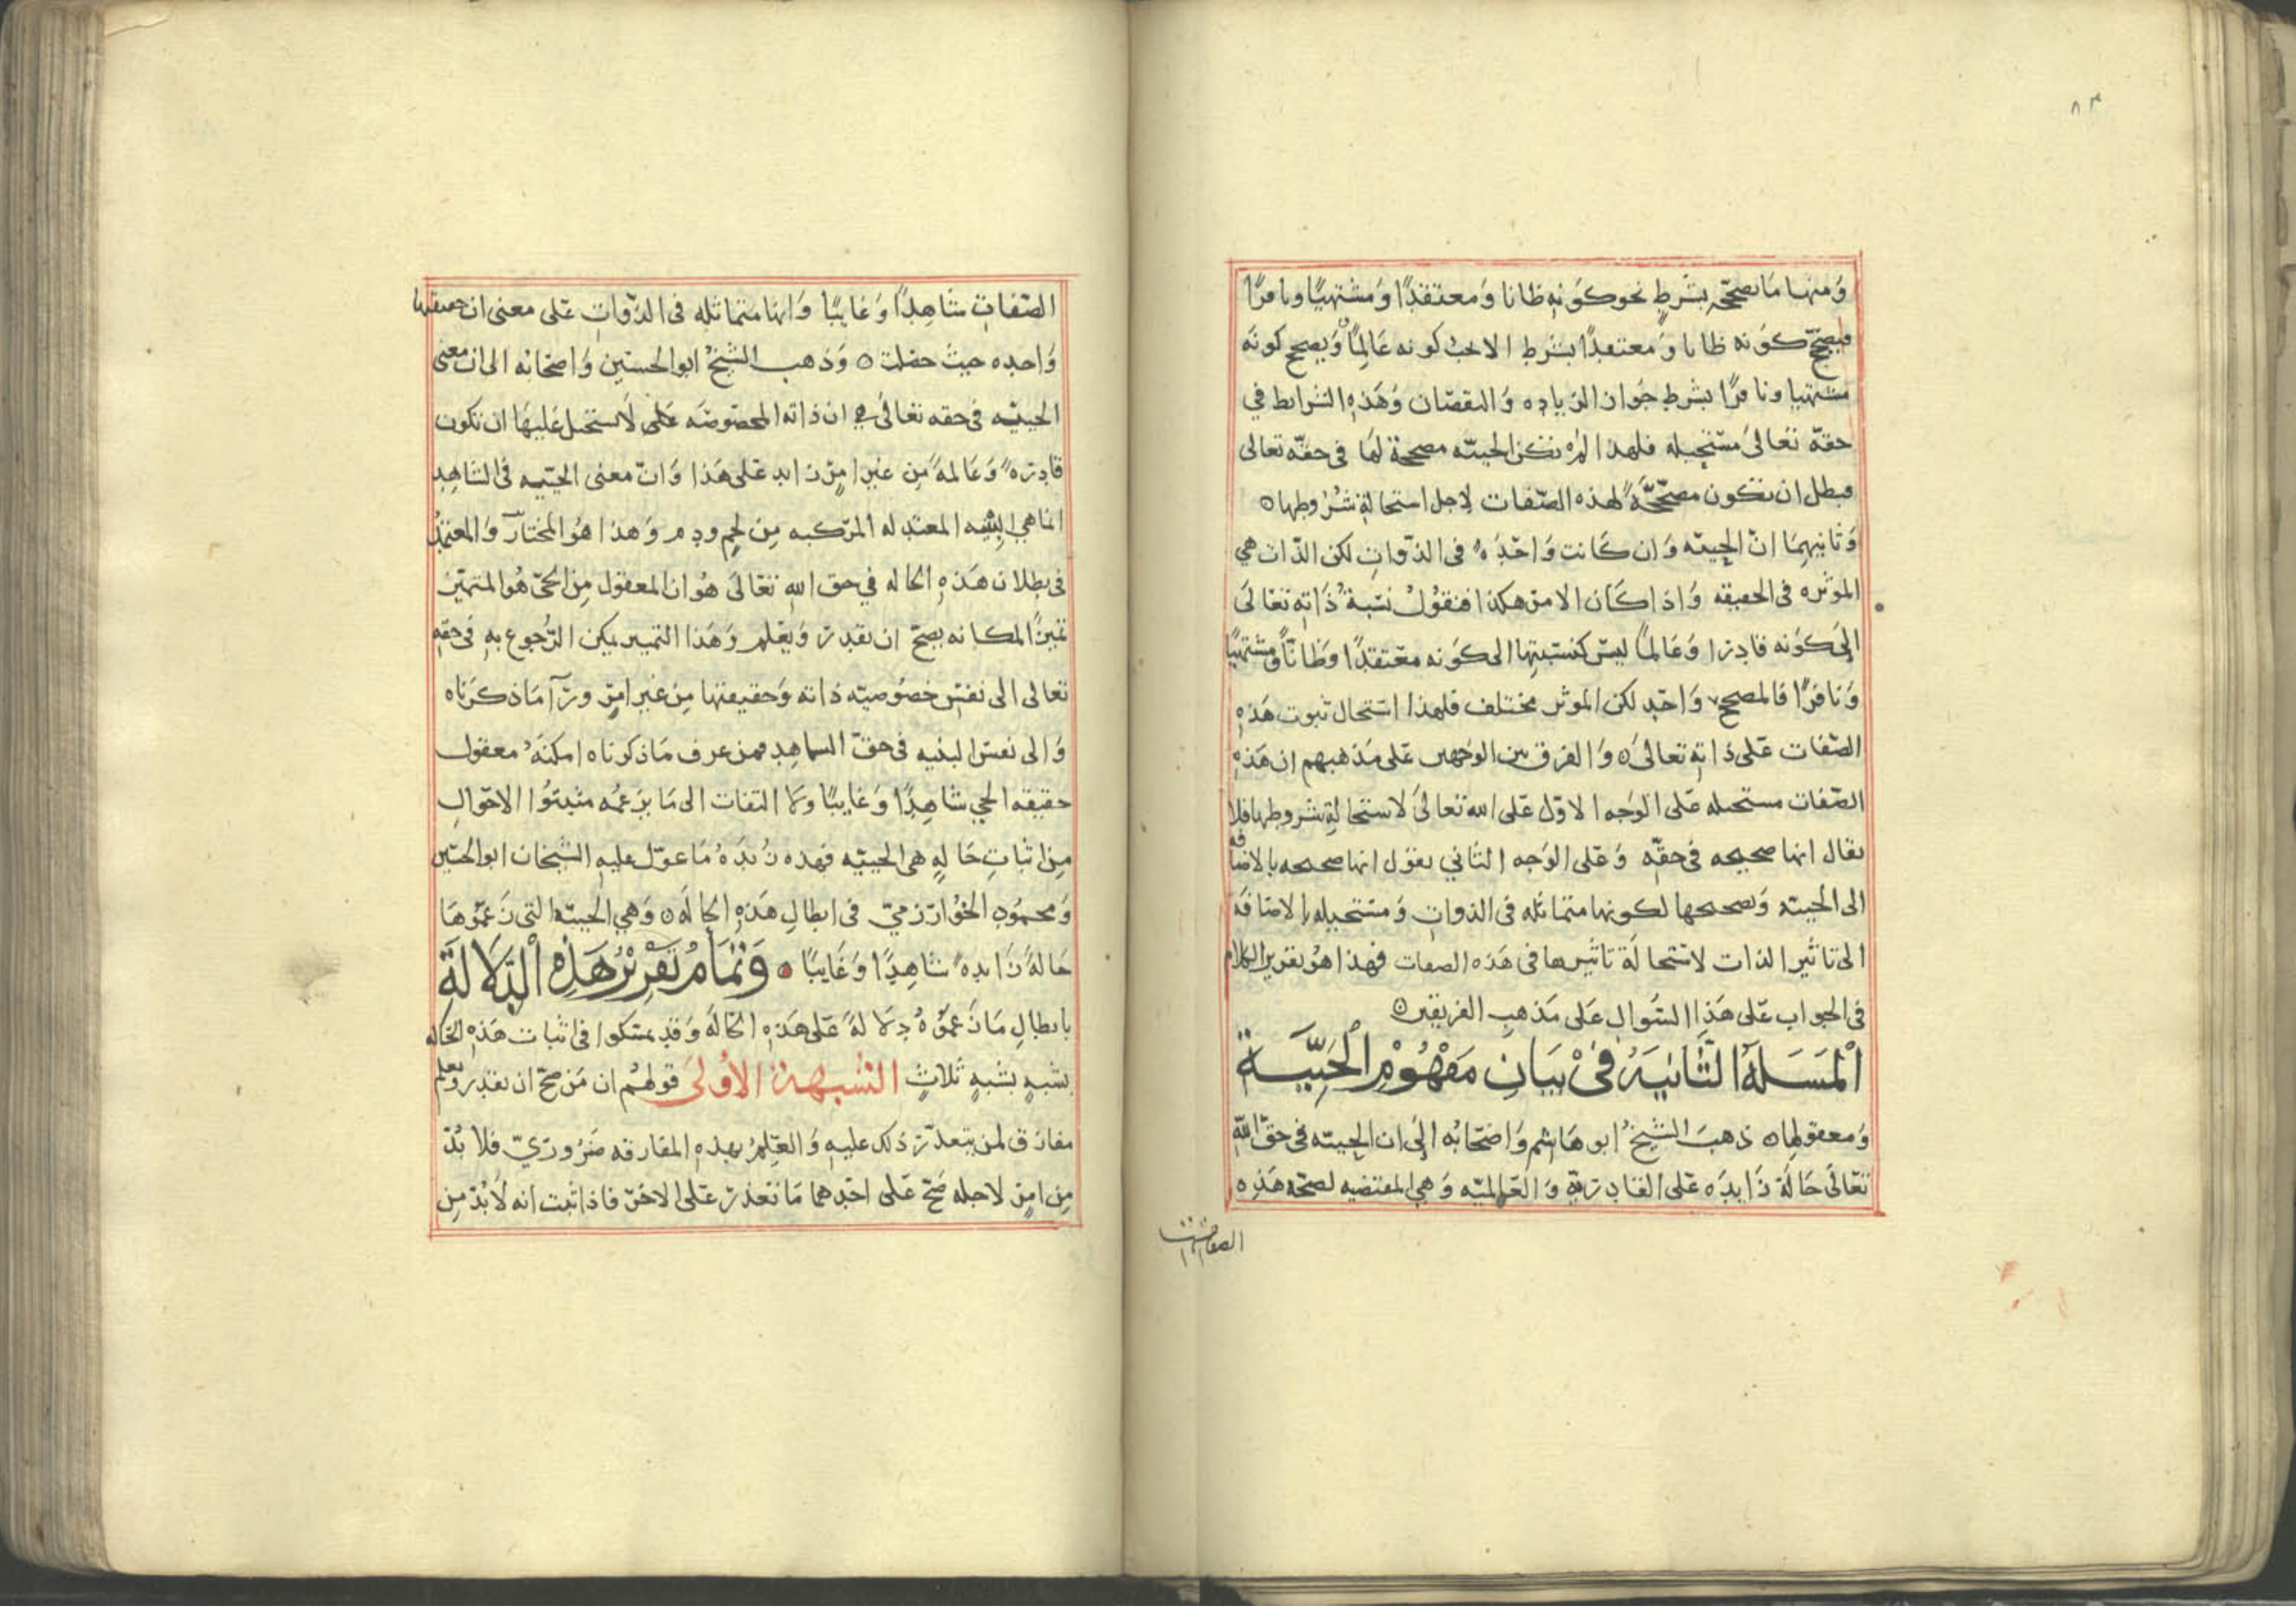 ٨٣
وَمنها مَا يصححّه بشرطٍ نحو كوَنهِ ظانا وَمعتقدًا وَمشتهيًا ونافرًا
فيصحّ كوَنه ظانا وَمعتقدًا بشرط الا يجب كونه عَالمِاً وَيصح كونَه
مشتهيا ونافرًا بشرط جَواز الزياده وَالنقصَان وَهَذهِ الشرايط في
حقهّ تعَالىَ مسَتحيله فلهذا لمَ تكن الحييّه مصححةً لهَا في حقهّ تعالى
فبطل ان تكون مصحّحَّةً لهذه الصّفات لاِجل استحالةِ شرُوطها ٥
وَثانيهما انّ الحييّه وَان كَانت وَاحدَهً في الذوّاتِ لكن الذّات هي
الموثره في الحقيقه وَاذا كَان الامر هكذا فنقوُل نسَبةُ ذَاتهِ تعَالىَ
إلىَ كوَنه قادِرا وَعَالماً ليسَ كنسَبتها الى كوَنه معَتقدًا وَظاناًّ وَمشتهيًا
وَنافرًا فالمصحح وَاحد لكن الموثر مختلف فلهذا استَحال ثبوت هَذهِ
الصّفات عَلى ذاتهِ تعالىَ ٥ وَالفرق بين الوجهين عَلى مَذهبهم ان هَذهِ
الصّفات مستحيله عَلى الوَجه الاول عَلى الله تعالىَ لاستحالةِ شروطها فلا
يقال انها صحيحه في حقهّ وَعَلى الوَجه الثاني يقول انها صحيحه بالاضافه
الى الحييّه وَيصححها لكونها متماثله في الذواتِ وَمسَتحيله بالاضافَة
الى تاثير الذات لاستحالَة تاثيرها في هَذه الصفات فهذا هوُ تقرير الكلام
في الجواب عَلى هَذا السَوالِ عَلى مَذهبِ الفريقين ٥
اْلمَسَلةُ الثَّانيَهُ فيْ بَيَانِ مَفْهُوْمِ الْحَيِيَّــةِ
وَمعقولها ٥ ذهبَ الشيخُ ابو هَاشم وَاصَحَابُه إلىَ ان الحييّه في حَق اللهِّ
تعَالىَ حَالَة زَايدَه عَلى القادريّة وَالعَالميّه وَهي المقتضيه لصحّه هَذه ٥
الصفات
الصّفاتِ شَاهِدًا وَغايبًا وَانها متماثله في الذوّاتِ عَلى معنى ان حقيقتها
وَاحده حيثُ حصَلت ٥ وَذهب الشيخُ ابو الحسَين وَاصحَابه الى ان معنى
الحييّه في حقه تعَالىَ هي ان ذاته المخصَوصَه لا يستحيل عَليهَا ان تكون
قادِرهً وَعَالمهً مِن غيرِ امرٍ زايد عَلى هَذا وَانّ معنى الحييّه في الشاهِد
انما هي البنيه المعتدله المركبه مِن لحمٍ ودم وَهذا هوُ المختارُ وَالمعتمدُ
في بطلان هَذهِ الحاله في حق اللهِ تعَالىَ هوُ ان المعقول مِن الحيّ هوُ المتميّز
تميزًا لمكانه يصحّ ان يقدِر وَيعَلم وَهَذا التميز يمكن الرّجوع بهِ في حقهِ
تعالى الى نفسِ خصَوصيّه ذاته وَحقيقتها مِن غيرِ امرٍ ورَآ مَا ذكرَناه
وَالى نفسَ البنيه في حقّ الشاهِد فمن عرف مَا ذكرناه امكنهَ معقول
حقيقه الحي شاهِدًا وَغايبًا وَلا التفات الى مَا يزعمُه مثبتوُا الاحَوال
مِن اثباتِ حَالهٍ هي الحييّه فهذه زُبدَهُ مَا عوّل عليهِ الشيخان ابو الحسَين
وَمحموُد الخوُارَزميّ في ابطالِ هَذهِ الحالَه ٥ وَهي الحييّه التى زَعموُهَا
حَالهً زَايدهً شاهِدًا وَغَايبًا ٥ وَتمَامُ تَقْرِيْرُ هَذِهِ الْدِّلاَلةِ
بابطالِ مَا زَعموُهُ دِلالهً عَلى هَذهِ الحالَهَ وَقد تمسَكوا في اثبات هَذهِ الحاله
بشبهٍ بشبهٍ ثلاثٍ الشُبهة الاوُلىَ قولهُم ان مَن صحّ ان يقدِر وَيعلم
مفارق لمن يتعذّر ذلك عليهِ وَالعلِمُ بهذهِ المفارقه ضَروريّ فلا بُدّ
مِن امرٍ لاجله صَحّ عَلى احدهما مَا تعذر عَلى الاخر فاذا ثبت انه لابُدّ مِن